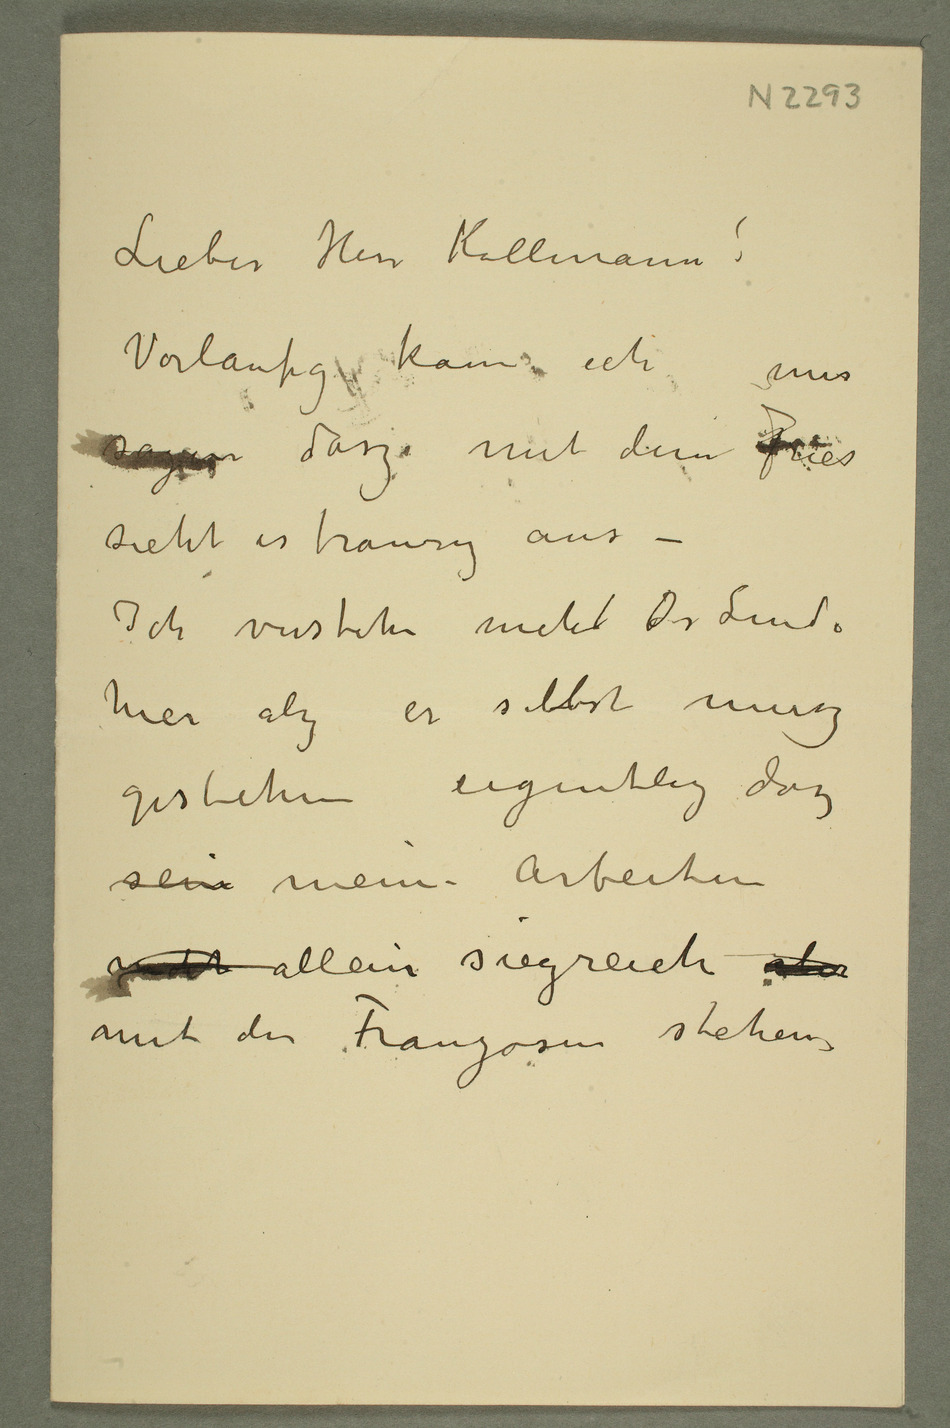 N 2293
Lieber Herr Kollmann!
Vorlaufig kann ich nur
sagen dasz mit dem Fries
sieht es traurig aus –
Ich verstehe nicht Dr Lind.
hier alz er selbst musz
gestehen eigentlig daz
sein meine Arbeiten
nicht allein siegreich aber
mit den Franzosen stehen,